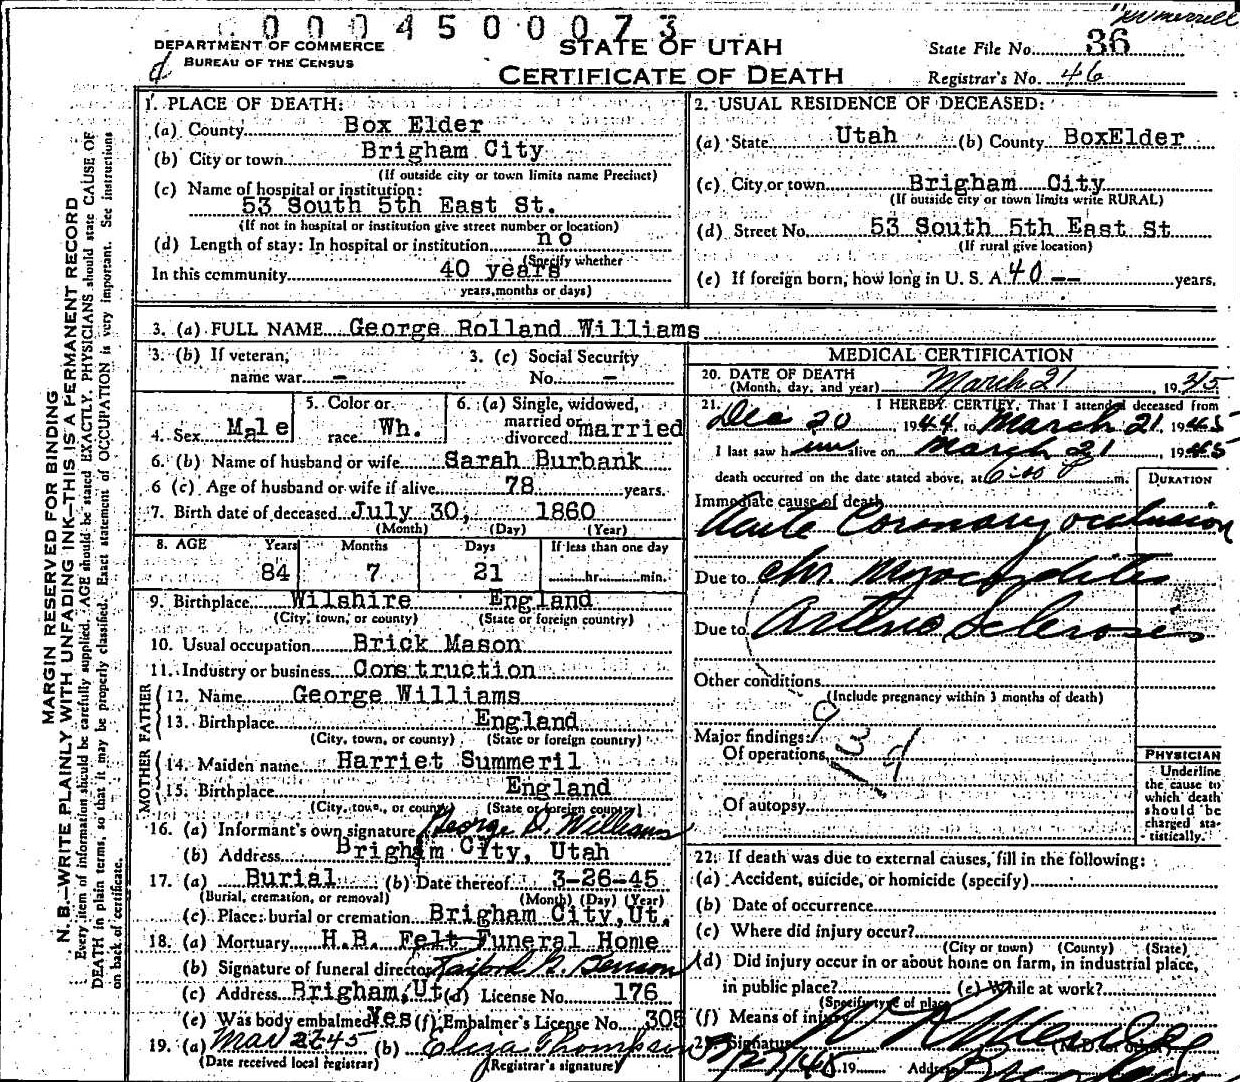 0004500073
DEPARTMENT OF COMMERCE
BUREAU OF THE CENSUS
STATE OF UTAH
CERTIFICATE OF DEATH
State File No. 36
Registrar's No. 46
MARGIN RESERVED FOR BINDING
N. B.—WRITE PLAINLY WITH UNFADING INK—THIS IS A PERMANENT RECORD
Every item of information should be carefully supplied. AGE should be stated EXACTLY. PHYSICIANS should state CAUSE OF
DEATH in plain terms, so that it may be properly classified. Exact statement of OCCUPATION is very important. See instructions
on back of certificate.
1. PLACE OF DEATH:
(a) County Box Elder
(b) City or town Brigham City
(If outside city or town limits name Precinct)
(c) Name of hospital or institution:
53 South 5th East St.
(If not in hospital or institution give street number or location)
(d) Length of stay: In hospital or institution no
(Specify whether
In this community 40 years
years, months or days)
2. USUAL RESIDENCE OF DECEASED:
(a) State Utah (b) County BoxElder
(c) City or town Brigham City
(If outside city or town limits write RURAL)
(d) Street No. 53 South 5th East St
(If rural give location)
(e) If foreign born, how long in U. S. A. 40 -- years.
3. (a) FULL NAME George Rolland Williams
3. (b) If veteran,
name war –
3. (c) Social Security
No. –
4. Sex Male
5. Color or
race Wh.
6. (a) Single, widowed,
married or
divorced married
6. (b) Name of husband or wife Sarah Burbank
6 (c) Age of husband or wife if alive 78 years.
7. Birth date of deceased July 30, 1860
(Month) (Day) (Year)
8. AGE Years Months Days If less than one day
84 7 21 hr. min.
9. Birthplace Wilshire England
(City, town, or county) (State or foreign country)
10. Usual occupation Brick Mason
11. Industry or business Construction
FATHER
12. Name George Williams
13. Birthplace England
(City, town, or county) (State or foreign country)
MOTHER
14. Maiden name Harriet Summeril
15. Birthplace England
(City, town, or county) (State or foreign country)
16. (a) Informant's own signature George D. Williams
(b) Address Brigham City, Utah
17. (a) Burial (b) Date thereof 3-26-45
(Burial, cremation, or removal) (Month) (Day) (Year)
(c) Place: burial or cremation Brigham City, Ut.
18. (a) Mortuary H.B. Felt Funeral Home
(b) Signature of funeral director Benson
(c) Address Brigham, Ut (d) License No. 176
(e) Was body embalmed Yes (f) Embalmer's License No. 305
19. (a) Mar 27 45 (b) Eliza Thompson
(Date received local registrar) (Registrar's signature)
MEDICAL CERTIFICATION
20. DATE OF DEATH
(Month, day, and year) March 21 19
21. I HEREBY CERTIFY, That I attended deceased from
Dec 20 1944, to March 21, 1945
I last saw h im alive on March 21, 1945
death occurred on the date stated above, at 6:00 P m.
DURATION
Immediate cause of death
Acute Coronary occlusion
Due to chr. Myocarditis
Due to Arterio Sclerosis
Other conditions
(Include pregnancy within 3 months of death)
Major findings:
Of operations
Of autopsy
PHYSICIAN
Underline
the cause to
which death
should be
charged sta-
tistically.
22. If death was due to external causes, fill in the following:
(a) Accident, suicide, or homicide (specify)
(b) Date of occurrence
(c) Where did injury occur?
(City or town) (County) (State)
(d) Did injury occur in or about home on farm, in industrial place,
in public place? (e) While at work?
(Specify type of place)
(f) Means of injury
23. Signature (M.D. or other)
3/27/45 19 Address